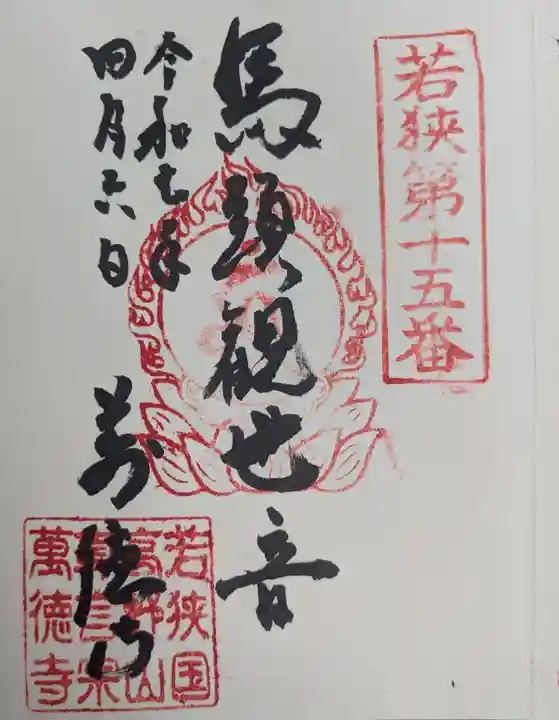 若狭第十五番
馬頭観世音
令和七年
四月六日
萬徳寺
若狭国
高野山
真言宗
萬徳寺